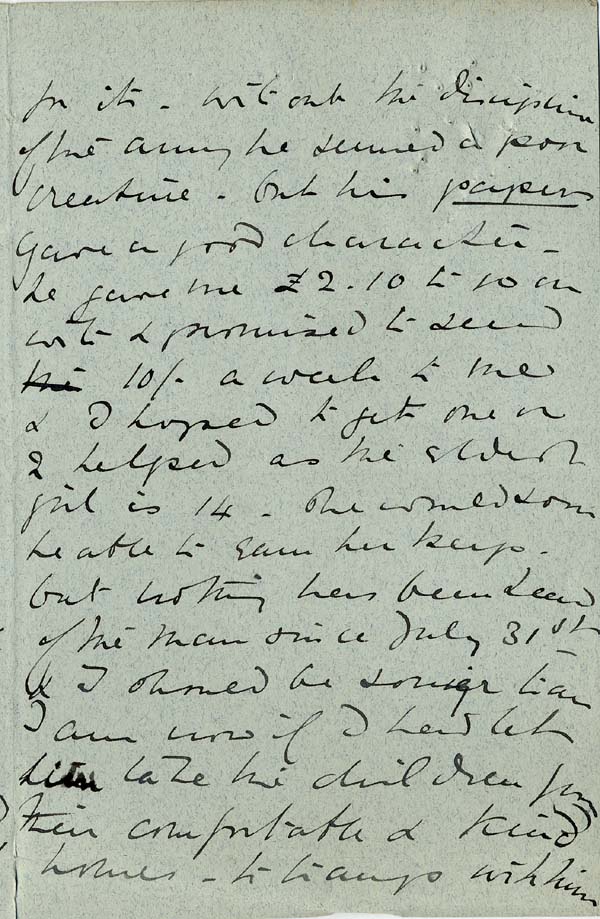 for it - without the discipline
of the army he seemed a poor
creature - but his papers
gave a good character -
he gave me £2.10 to go on
with & promised to send
10/- a week to me
& I hoped to get one or
2 helped as the eldest
girl is 14 - she would soon
be able to earn her keep -
but nothing has been heard
of the man since July 31st
& I should be sorrier than
I am now if I had let
him take the children from
their comfortable & kind
homes - to tramp with him